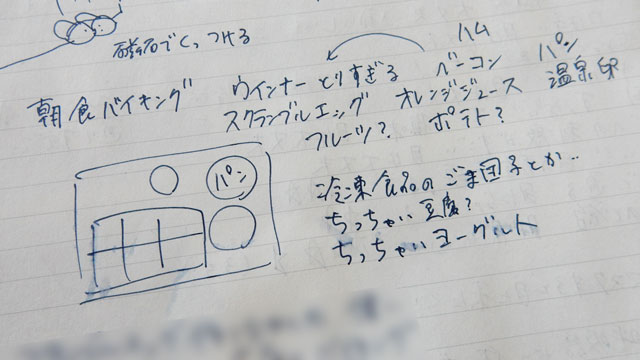 磁石でくっつける
朝食バイキング
ウインナーとりすぎる
スクランブルエッグ
フルーツ?
ハム
ベーコン
オレンジジュース
ポテト?
パン
温泉卵
パン
冷凍食品のごま団子とか..
ちっちゃい豆腐?
ちっちゃいヨーグルト